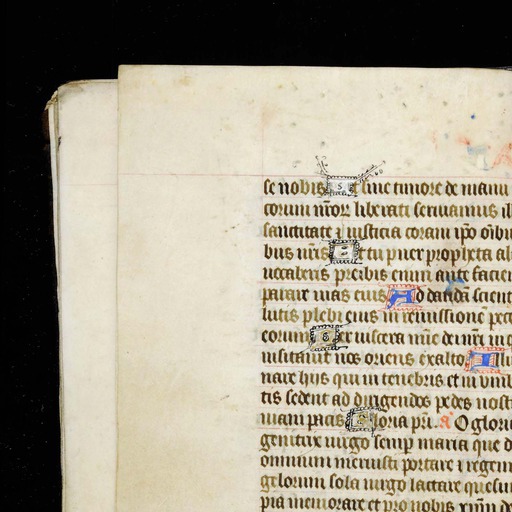 se nobis Ut sine timore de manu
corum nr̄oꝝ liberati seruiamus il
sanctitate ⁊ iusticia coram ip̄o oīb
bus nr̄is Et tu puer propheta al
uocaberis preibis enim ante facie
parare uias eius Ad dandā scient
lutis plebi eius remissionē pecc
eorum Per uiscera mīe dei nr̄i in q
uisitauit nos oriens ex alto Illu
nare hijs qui in tenebris et in vm
tis sedent ad dirigendos pedes nost
uiam pacis Gloria pr̄i. a O glorio
genitrix uirgo semꝑ maria que d
omnium meruisti portare ⁊ regem
gelorum sola uirgo lactare quesu
pia memorare et pro nobis xp̄m de